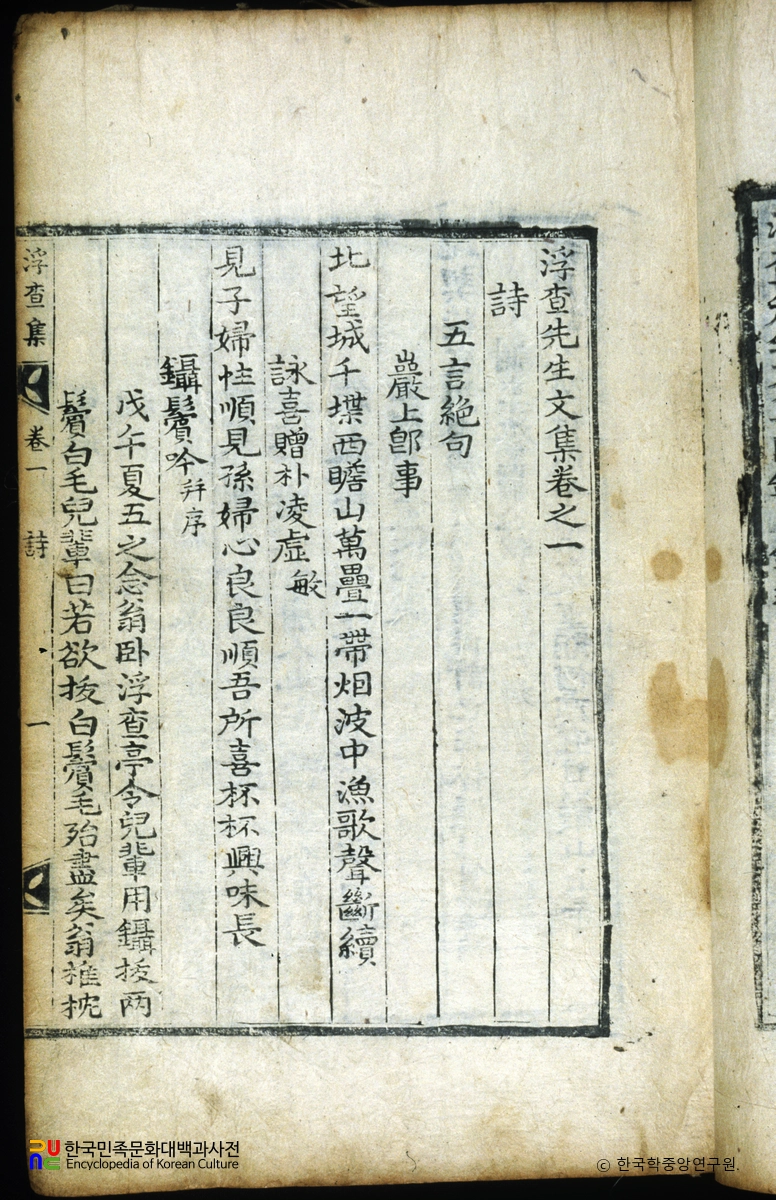 浮查先生文集卷之一
詩
五言絶句
巖上卽事
北望城千堞西瞻山萬疊一帶烟波中漁歌聲斷續
詠喜贈朴凌虛敏
見子婦性順見孫婦心良良順吾所喜杯杯興味長
鑷鬢吟幷序
戊午夏五之念翁卧浮查亭令兒輩用鑷拔兩
鬢白毛兒輩曰若欲拔白鬢毛殆盡矣翁推枕
浮查集
卷一
詩
一
한국민족문화대백과사전
Encyclopedia of Korean Culture
© 한국학중앙연구원